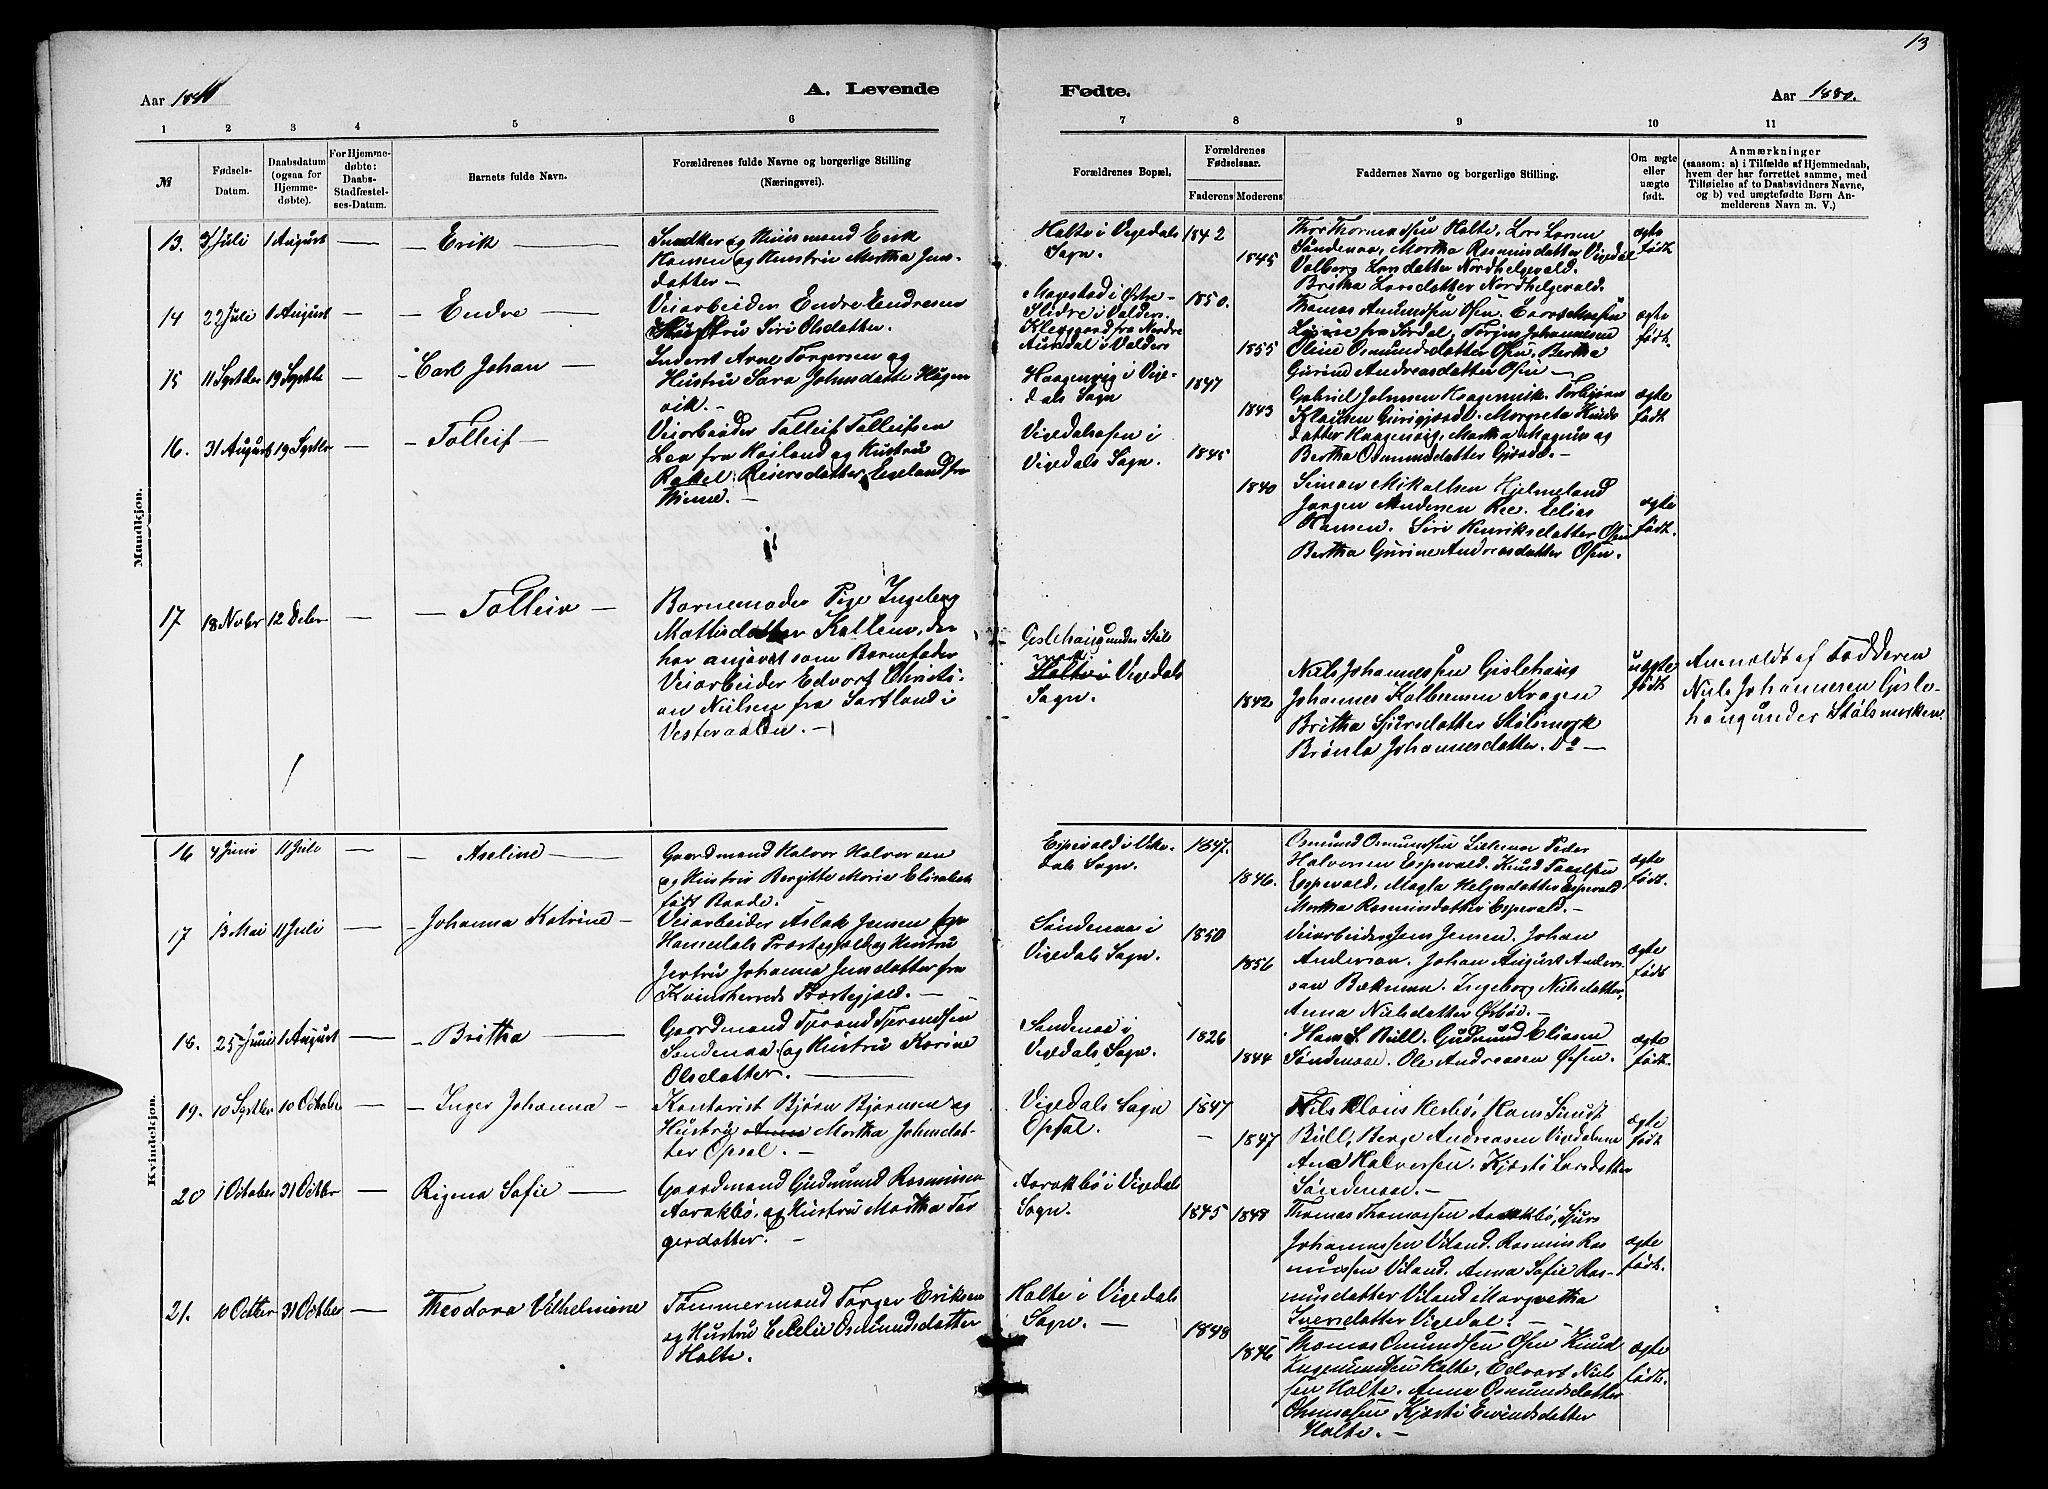 13
Aar 1880
A. Levende
Fødte.
Aar 1880.
1 2 3 4 5 6 7 8 9 10 11
№
Fødsels-Datum.
Daabsdatum (ogsaa for Hjemme-døbte).
For Hjemme-døbte: Daabs-Stadfæstel-ses-Datum.
Barnets fulde Navn.
Forældrenes fulde Navne og borgerlige Stilling
(Næringsvei).
Forældrenes Bopæl.
Forældrenes Fødselsaar.
Faderens Moderens
Faddernes Navne og borgerlige Stilling.
Om ægte eller uægte født.
Anmærkninger
(saasom: a) i Tilfælde af Hjemmedaab,
hvem der har forrettet samme, med
Tilføielse af to Daabsvidners Navne,
og b) ved uægtefødte Børn An-
melderens Navn m. V.)
Mandkjøn.
13. 3 Juli 1 August — Erik —
Snedker og Huusmand Erik
Hansen og Hustru Martha Jens-
datter —
Halte i Vigedals
Sogn.
1842
1845
Thor Thormodsen Halte, Lars Larsen
Søndenaa, Martha Rasmusdatter Vigedal
Valborg Larsdatter Nordhelgevald.
Britha Larsdatter Nordhelgevald.
ægte
født
14 22 Juli 1 August — Endre —
Veiarbeider Endre Endresen
Hustru Siri Olsdatter.
Magestad i Østre
Slidre i Valders.
Kleggaard fra Nordre
Aurdal i Valders
1850.
1855
Thomas Amundsen Osen,
fra Sørdal, Torjus Johannesen
Oline Osmundsdatter Osen, Bertha
Gurine Andreasdatter Osen —
ægte
født.
15 11 Septber 19 Septbr — Carl Johan —
Inderst Arne Torgersen og
Hustru Sara Johnsdatter Haagen
vik. —
Haagenvig i Vige-
dals Sogn
1847
1843
Gabriel Johnsen Haagenvik, Torbjørn
Klausen, Margreta Knuds
datter Haagenvig, Martha Magnus og
Bertha Osmundsdatter —
ægte
født.
16. 31 August 19 Septbr — Tolleif —
Veiarbeider Tolleif Tolleifsen
Lea fra Høiland og Hustru
Rakel Reiersdatter Egeland fra
Vigedalsosen i
Vigedals Sogn.
1845
1840
Simon Mikalsen Hjelmeland
Jørgen Andersen Ree. Elias
Hansen. Siri Henriksdatter Osen
Bertha Gurine Andreasdatter Osen.
ægte
født.
17 18 Novbr 12 Debr — Tolleiv —
Barnemoder Pige Ingeborg
Mattisdatter Kallem, der
har angivet som Barnefader
Veiarbeider Edvart Christi-
an Nielsen fra Sortland i
Vesteraalen. —
Gislehaug under Støls
mark
Halte i Vigedals
Sogn.
1842
Niels Johannessen Gislehaug
Johannes Kolbensen Kragen
Britha Sjursdatter Stølsmark
Brønla Johannesdatter. Do —
uægte
født
Anmeldt af Fadderen
Niels Johannesen Gisle-
haug under Stølsmarken.
Kvindekjøn.
16 4 Juni 11 Juli — Aseline —
Gaardmand Halvor Halvorsen
og Hustru Bergitte Marie Elisabeth
født Baade.
Espevald i Vike-
dals Sogn.
1847.
1846.
Osmund Osmundsen Lillenaa Peder
Halvorsen Espevald. Knud Paalsen
Espevald, Magla Helgesdatter Espevald
Martha Rasmusdatter Espevald. —
ægte
født.
17 13 Mai 11 Juli — Johanna Katrine —
Veiarbeider Aslak Jensen fra
Hamedals Præstegjeld og Hustru
Jertru Johanna Jensdatter fra
Kvinsherreds Præstegjæld. —
Søndenaa i
Vigedals Sogn.
1850
1856
Veiarbeider Jens Jensen. Johan
Anderson. Johan August Anders
son Bækman. Ingeborg Nielsdatter,
Anna Nielsdatter Ørbø. —
ægte
født
18. 25 Juni 1 August — Britha —
Gaardmand Tjerand Tjerandsen
Søndenaa og Hustru Karine
Olsdatter. —
Søndenaa i
Vigedals Sogn.
1826
1844
Hans S. Bull. Gudmund Eliasen
Søndenaa. Ole Andreasen Osen.
ægte
født.
19. 10 Septbr 10 Octobr — Inger Johanna —
Kontorist Bjørn Bjørnsen og
Hustru Anna Martha Johnsdat-
ter Opsal. —
Vigedals Sogn
Opsal.
1847
1847
Nils Klaus Kesbøe Hans Smidt
Bull, Berge Andreasen Vigedalsosen
Ana Halvorsen. Kjøsti Larsdatter
Søndenaa. —
ægte
født
20 1 October 31 Octbr — Rigena Sofie —
Gaardmand Gudmund Rasmussen
Aarakbø, og Hustru Martha Tor
gersdatter. —
Aarakbø i Vigedals
Sogn.
1845 1848
Thomas Thomassen Aarakbø, Sjurs
Johannessen Viland. Rasmus Ras
mussen Viland. Anna Sofie Ras-
musdatter Viland Margretha
Iversdatter Vigedal. —
ægte
født.
21. 10 Octbr 31 Octbr — Theodora Vilhelmine
Tømmermand Torger Eriksen
og Hustru Cecelie Osmundsdatter
Halte.
Halte i Vigedals
Sogn. —
1848
1846
Thomas Osmundsen Osen Knud
Ingemundsen Halte, Edvart Niels
sen Halte. Anna Osmundsdatter
Kjøsti Eivindsdatter
Halte. —
ægte
født.